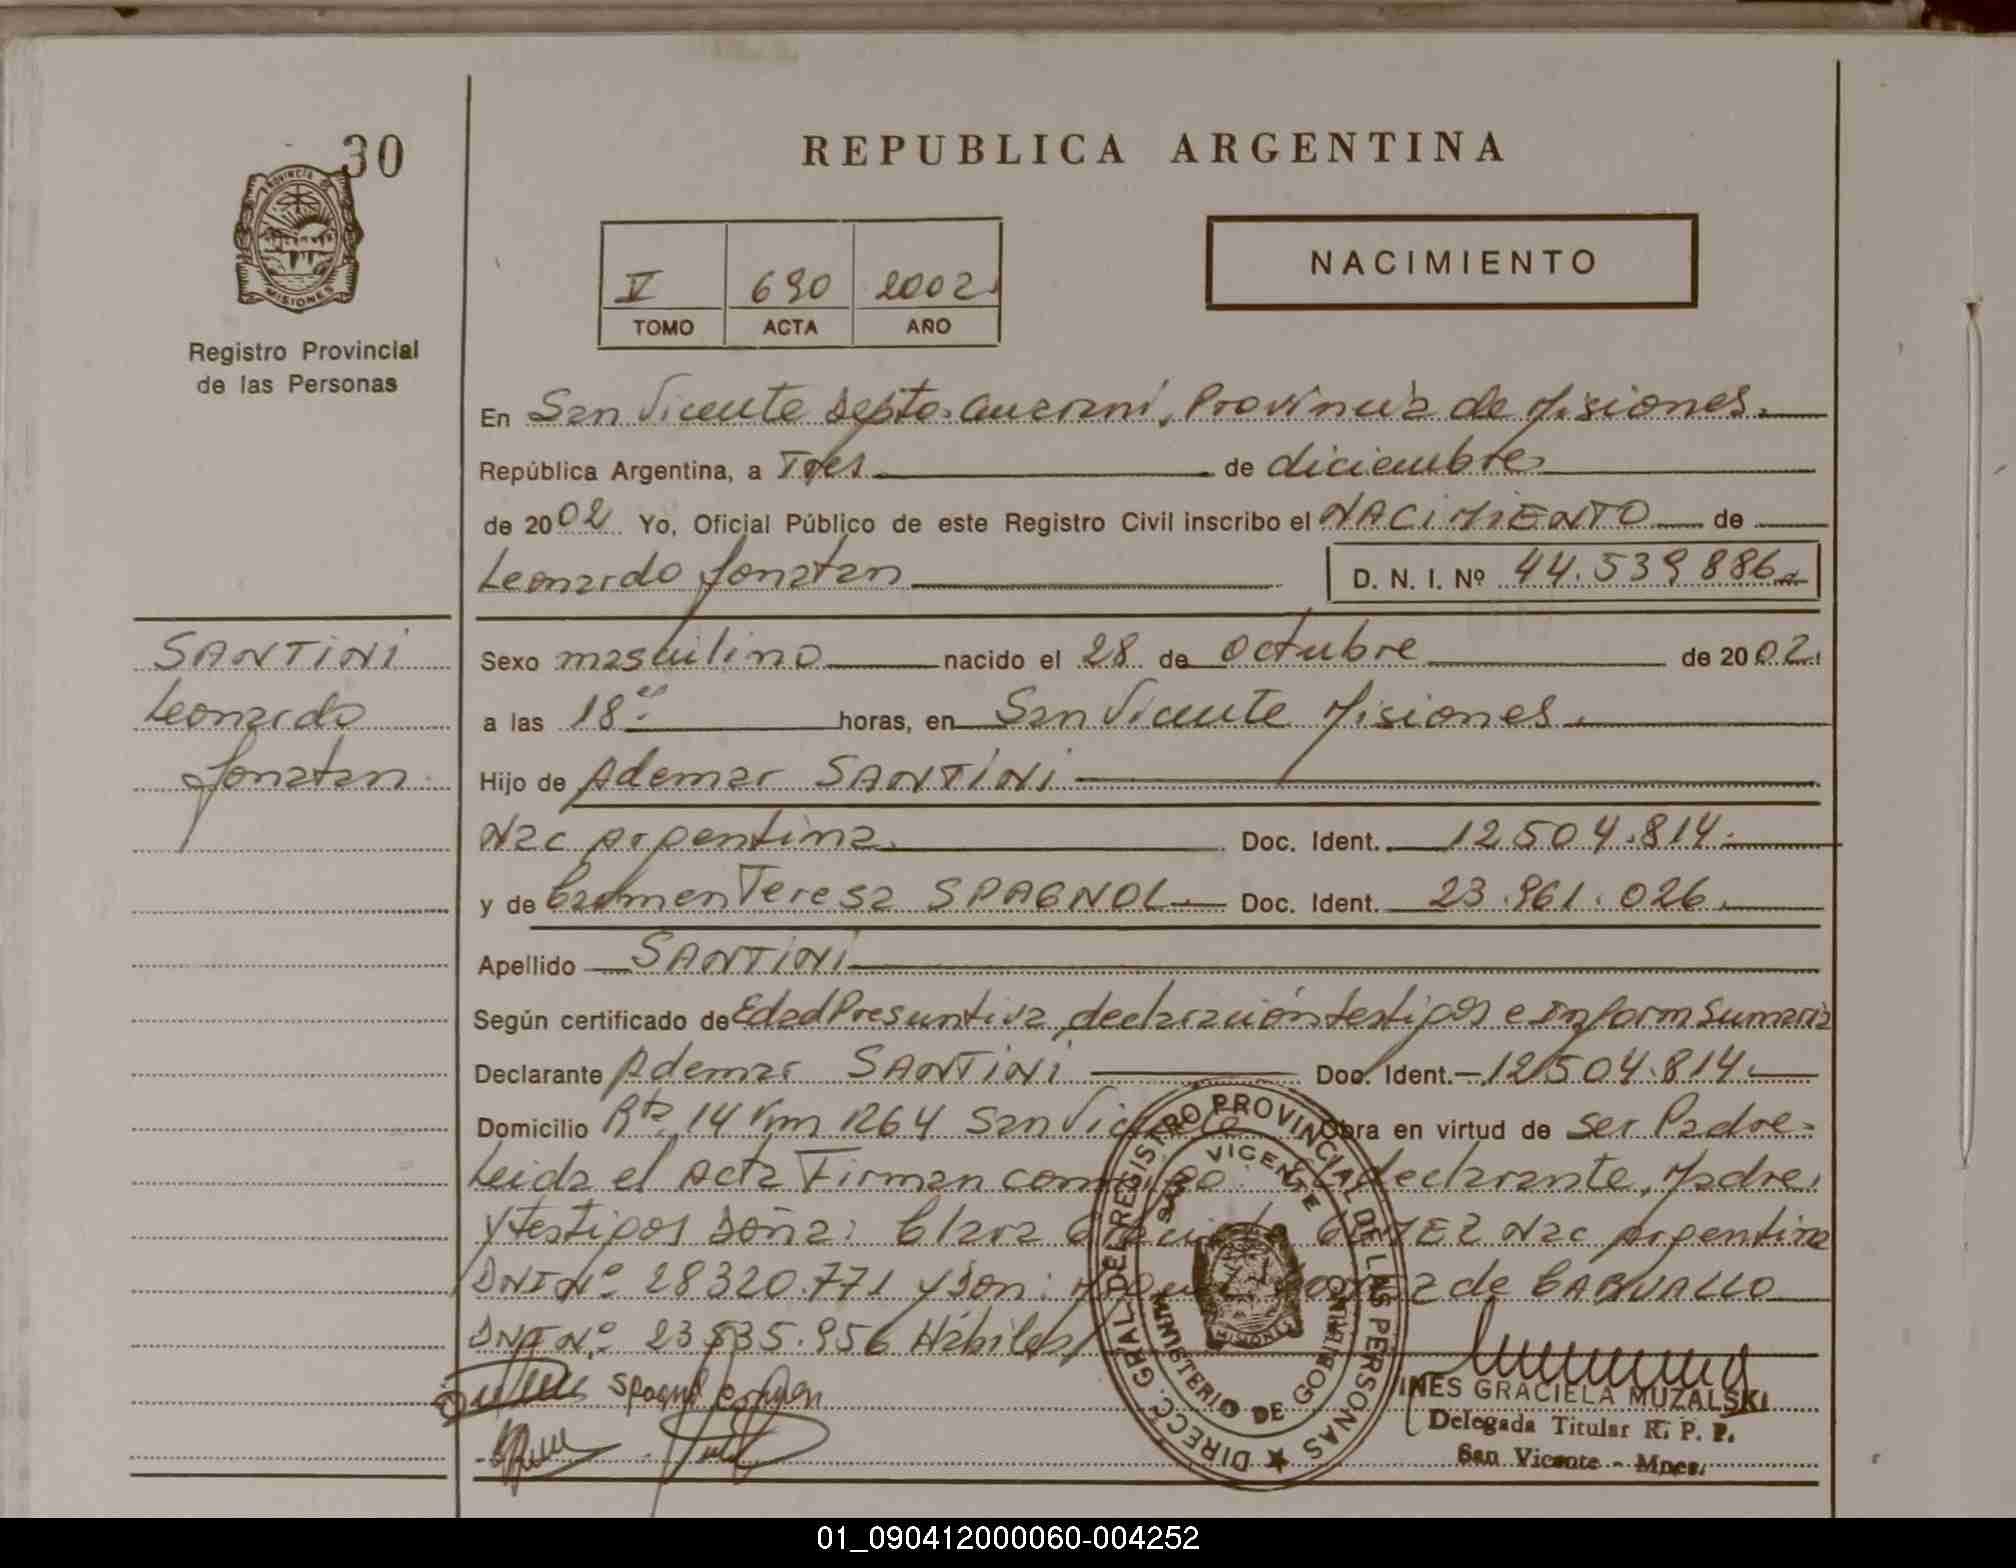 30
REPUBLICA ARGENTINA
PROVINCIA DE
MISIONES
Registro Provincial
de las Personas
NACIMIENTO
V 690 2002
TOMO ACTA AÑO
En San Vicente Depto. Guarani, Provincia de Misiones.
República Argentina, a Tres de diciembre
de 2002 Yo, Oficial Público de este Registro Civil inscribo el NACIMIENTO de
Leonardo Jonatan D. N. I. Nº 44.539886
SANTINI
Leonardo
Jonatan
Sexo masculino nacido el 28 de octubre de 2002
a las 18 horas, en San Vicente Misiones.
Hijo de Ademar SANTINI
Nac argentina. Doc. Ident. 12.504.814.
y de Carmen Teresa SPAGNOL Doc. Ident. 23.961.026.
Apellido SANTINI
Según certificado de Edad Presuntiva declaración testigos e Inform Sumaria
Declarante Ademar SANTINI Doc. Ident. 12.504.814.
Domicilio Rta. 14 Km 1264 San Vicente Obra en virtud de ser Padre.
Leida el Acta Firman conmigo: declarante, Madre,
y testigos Doña: Clara Nac argentina
DNI Nº 28320.771 y Don: de CARVALLO
DNI Nº 23535.956 Hábiles
Spagnol Carmen
DIRECC. GRAL. DEL REGISTRO PROVINCIAL DE LAS PERSONAS
SAN VICENTE
MISIONES
MINISTERIO DE GOBIERNO
INES GRACIELA MUZALSKI
Delegada Titular R. P. P.
San Vicente - Mnes.
01_090412000060-004252